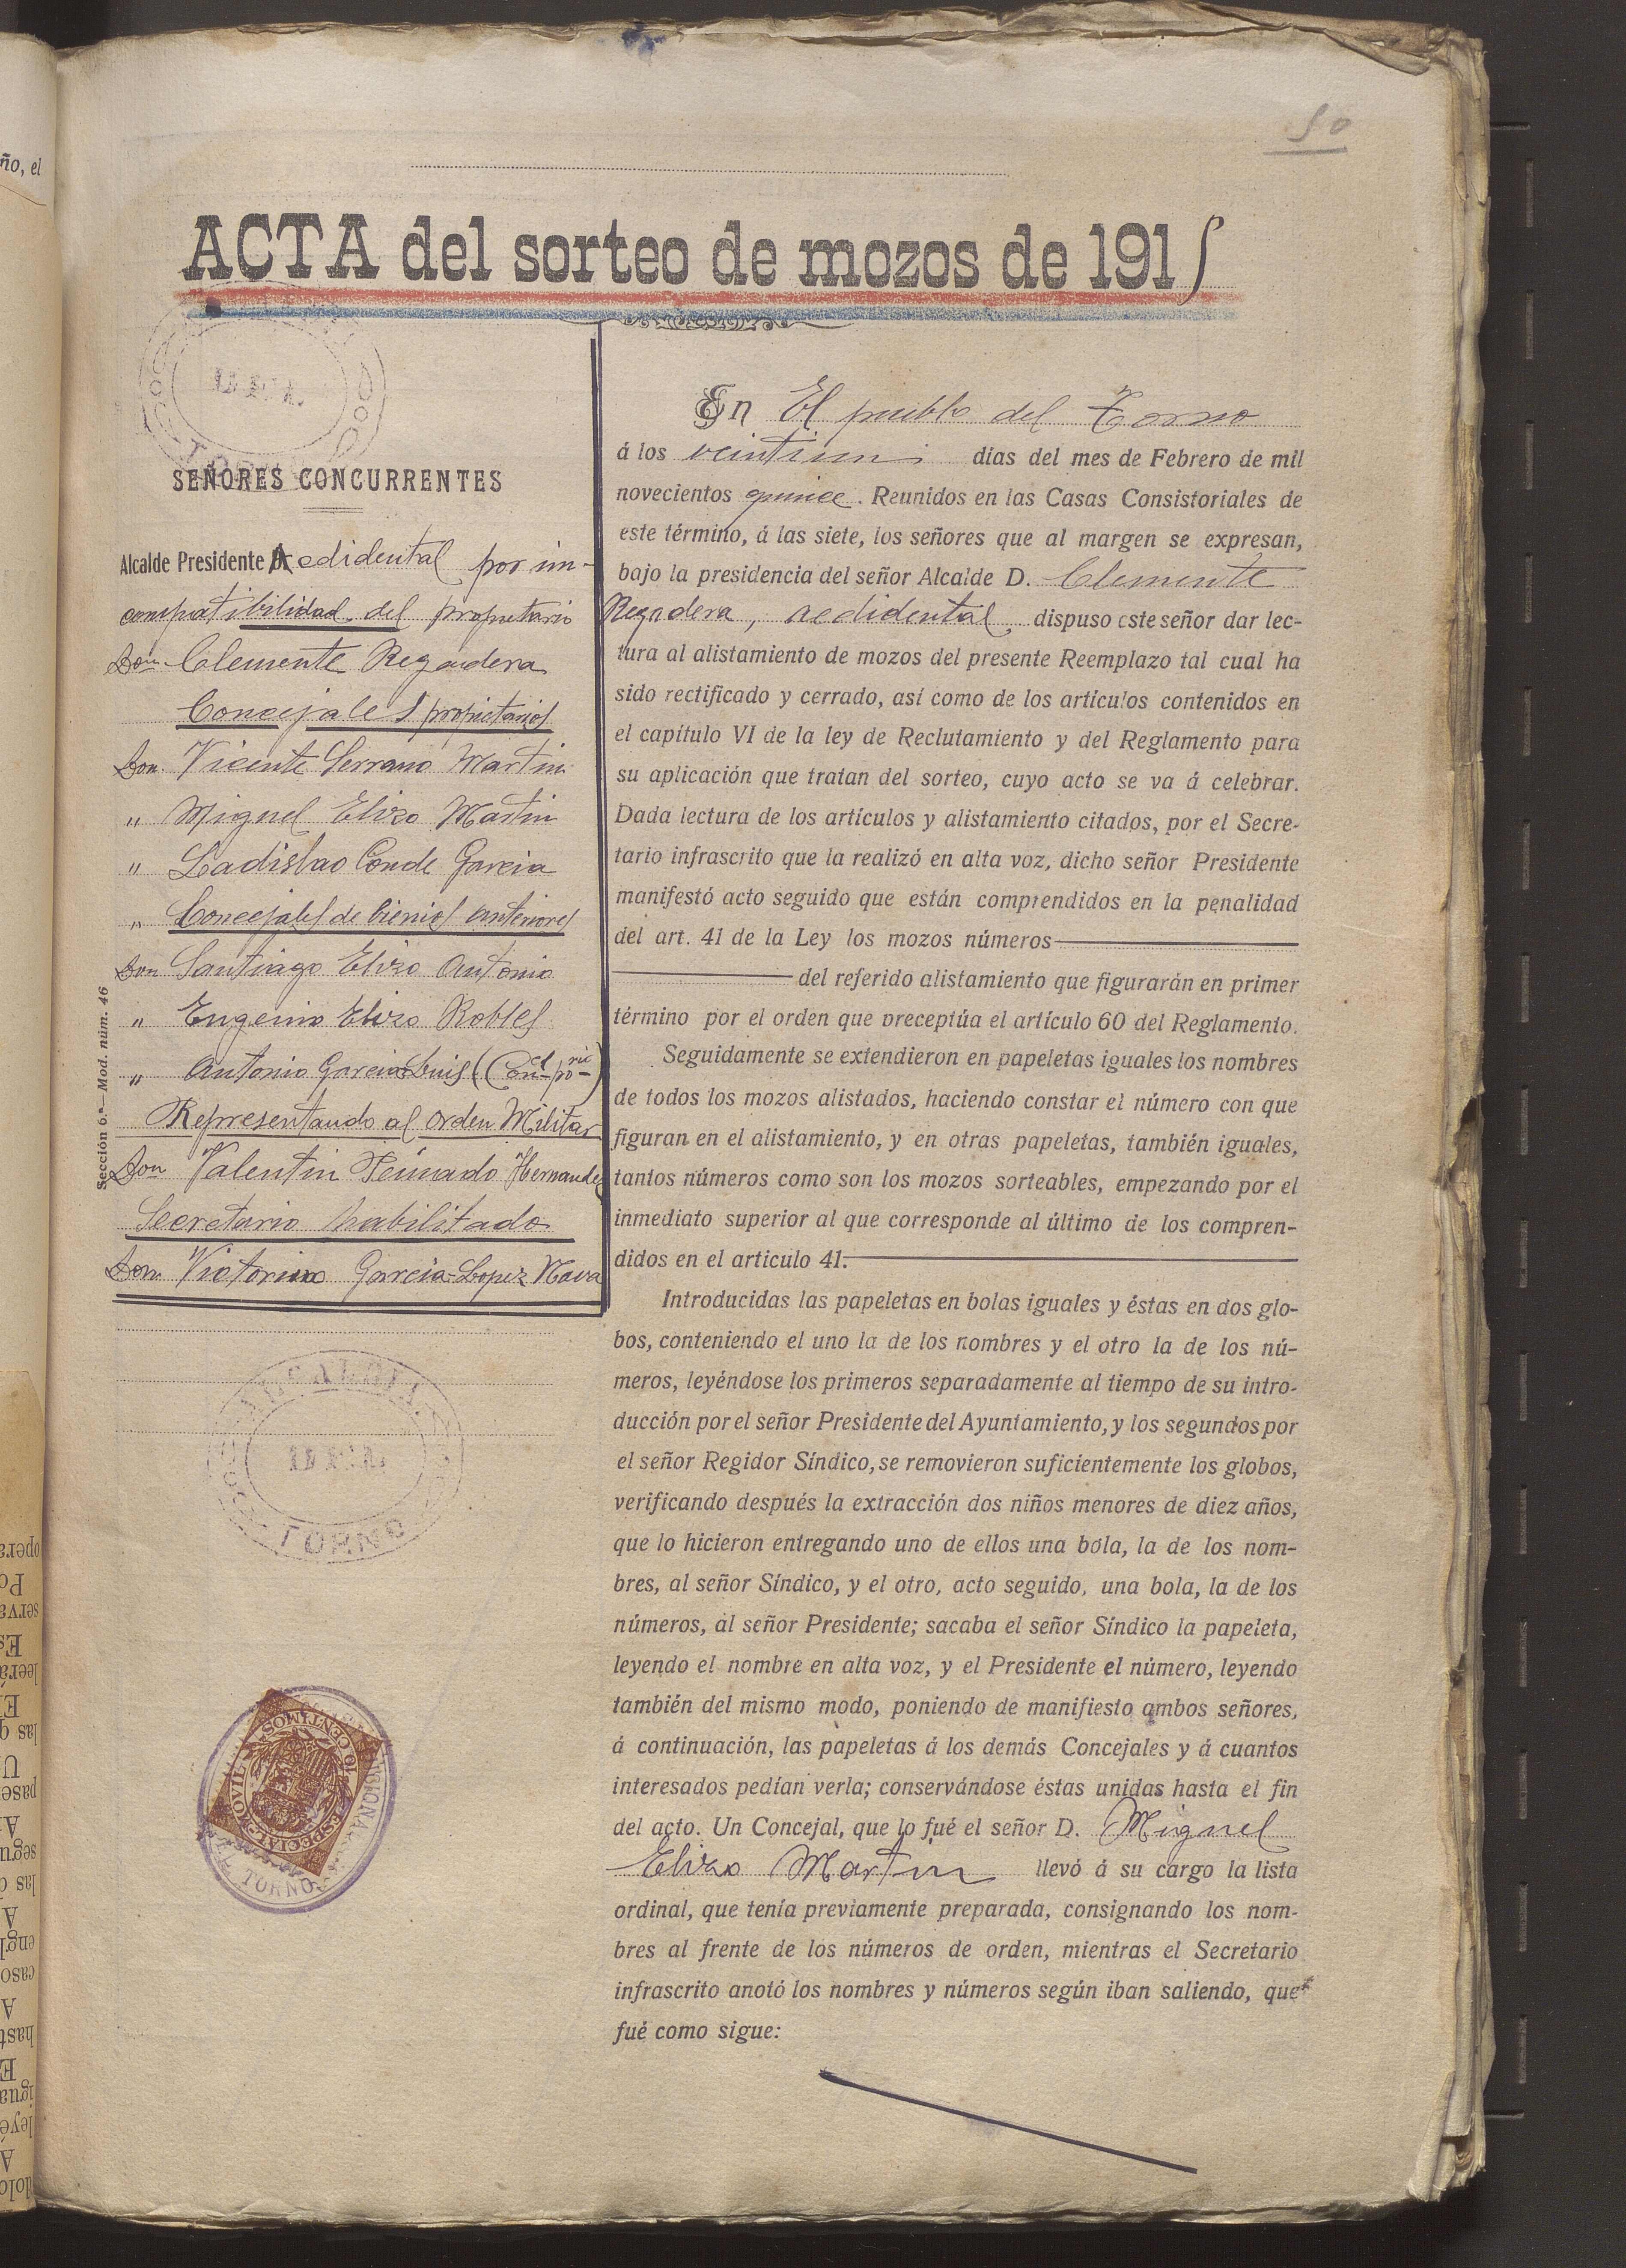 50
ño, el
ACTA del sorteo de mozos de 1915
SEÑORES CONCURRENTES
Alcalde Presidente Acdidental por in-
compatibilidad del propietario
Don Clemente Regadera
Concejales propietarios
Don Vicente Serrano Martin
" Miguel Elizo Martin
" Ladislao Conde Garcia
" Concejales de bienios anteriores
Don Santiago Elizo Antonio
" Eugenio Elizo Robles
" Antonio Garcia Luis (Conl prio)
Representando al orden Militar
Don Valentin Peinado Hernandez
Secretario habilitado
Don Victorino Garcia-Lopez Nava
Sección 6.ª—Mod. núm. 46
ALCALDIA
TORNO
ESPECIAL MOVIL 10 CENTIMOS
TORNO
En El pueblo del Torno
á los veintiun dias del mes de Febrero de mil
novecientos quince. Reunidos en las Casas Consistoriales de
este término, á las siete, los señores que al margen se expresan,
bajo la presidencia del señor Alcalde D. Clemente
Regadera, acdidental, dispuso este señor dar lec-
tura al alistamiento de mozos del presente Reemplazo tal cual ha
sido rectificado y cerrado, así como de los artículos contenidos en
el capítulo VI de la ley de Reclutamiento y del Reglamento para
su aplicación que tratan del sorteo, cuyo acto se va á celebrar.
Dada lectura de los artículos y alistamiento citados, por el Secre-
tario infrascrito que la realizó en alta voz, dicho señor Presidente
manifestó acto seguido que están comprendidos en la penalidad
del art. 41 de la Ley los mozos números
del referido alistamiento que figurarán en primer
término por el orden que preceptúa el artículo 60 del Reglamento.
Seguidamente se extendieron en papeletas iguales los nombres
de todos los mozos alistados, haciendo constar el número con que
figuran en el alistamiento, y en otras papeletas, también iguales,
tantos números como son los mozos sorteables, empezando por el
inmediato superior al que corresponde al último de los compren-
didos en el articulo 41.
Introducidas las papeletas en bolas iguales y éstas en dos glo-
bos, conteniendo el uno la de los nombres y el otro la de los nú-
meros, leyéndose los primeros separadamente al tiempo de su intro-
ducción por el señor Presidente del Ayuntamiento, y los segundos por
el señor Regidor Síndico, se removieron suficientemente los globos,
verificando después la extracción dos niños menores de diez años,
que lo hicieron entregando uno de ellos una bola, la de los nom-
bres, al señor Síndico, y el otro, acto seguido, una bola, la de los
números, al señor Presidente; sacaba el señor Síndico la papeleta,
leyendo el nombre en alta voz, y el Presidente el número, leyendo
también del mismo modo, poniendo de manifiesto ambos señores,
á continuación, las papeletas á los demás Concejales y á cuantos
interesados pedían verla; conservándose éstas unidas hasta el fin
del acto. Un Concejal, que lo fué el señor D. Miguel
Elizo Martin llevó á su cargo la lista
ordinal, que tenía previamente preparada, consignando los nom-
bres al frente de los números de orden, mientras el Secretario
infrascrito anotó los nombres y números según iban saliendo, que
fué como sigue: